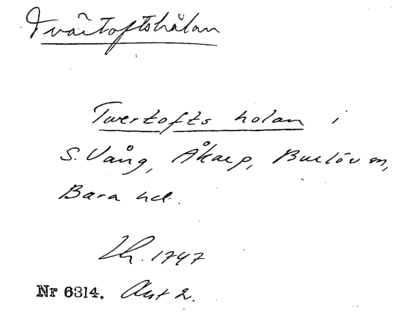 Tvärtoftshålan
Twertofts holan i
S. Vång, Åkarp, Burlöv sn,
Bara hd.
Lh. 1747
Nr 6314. Akt 2.